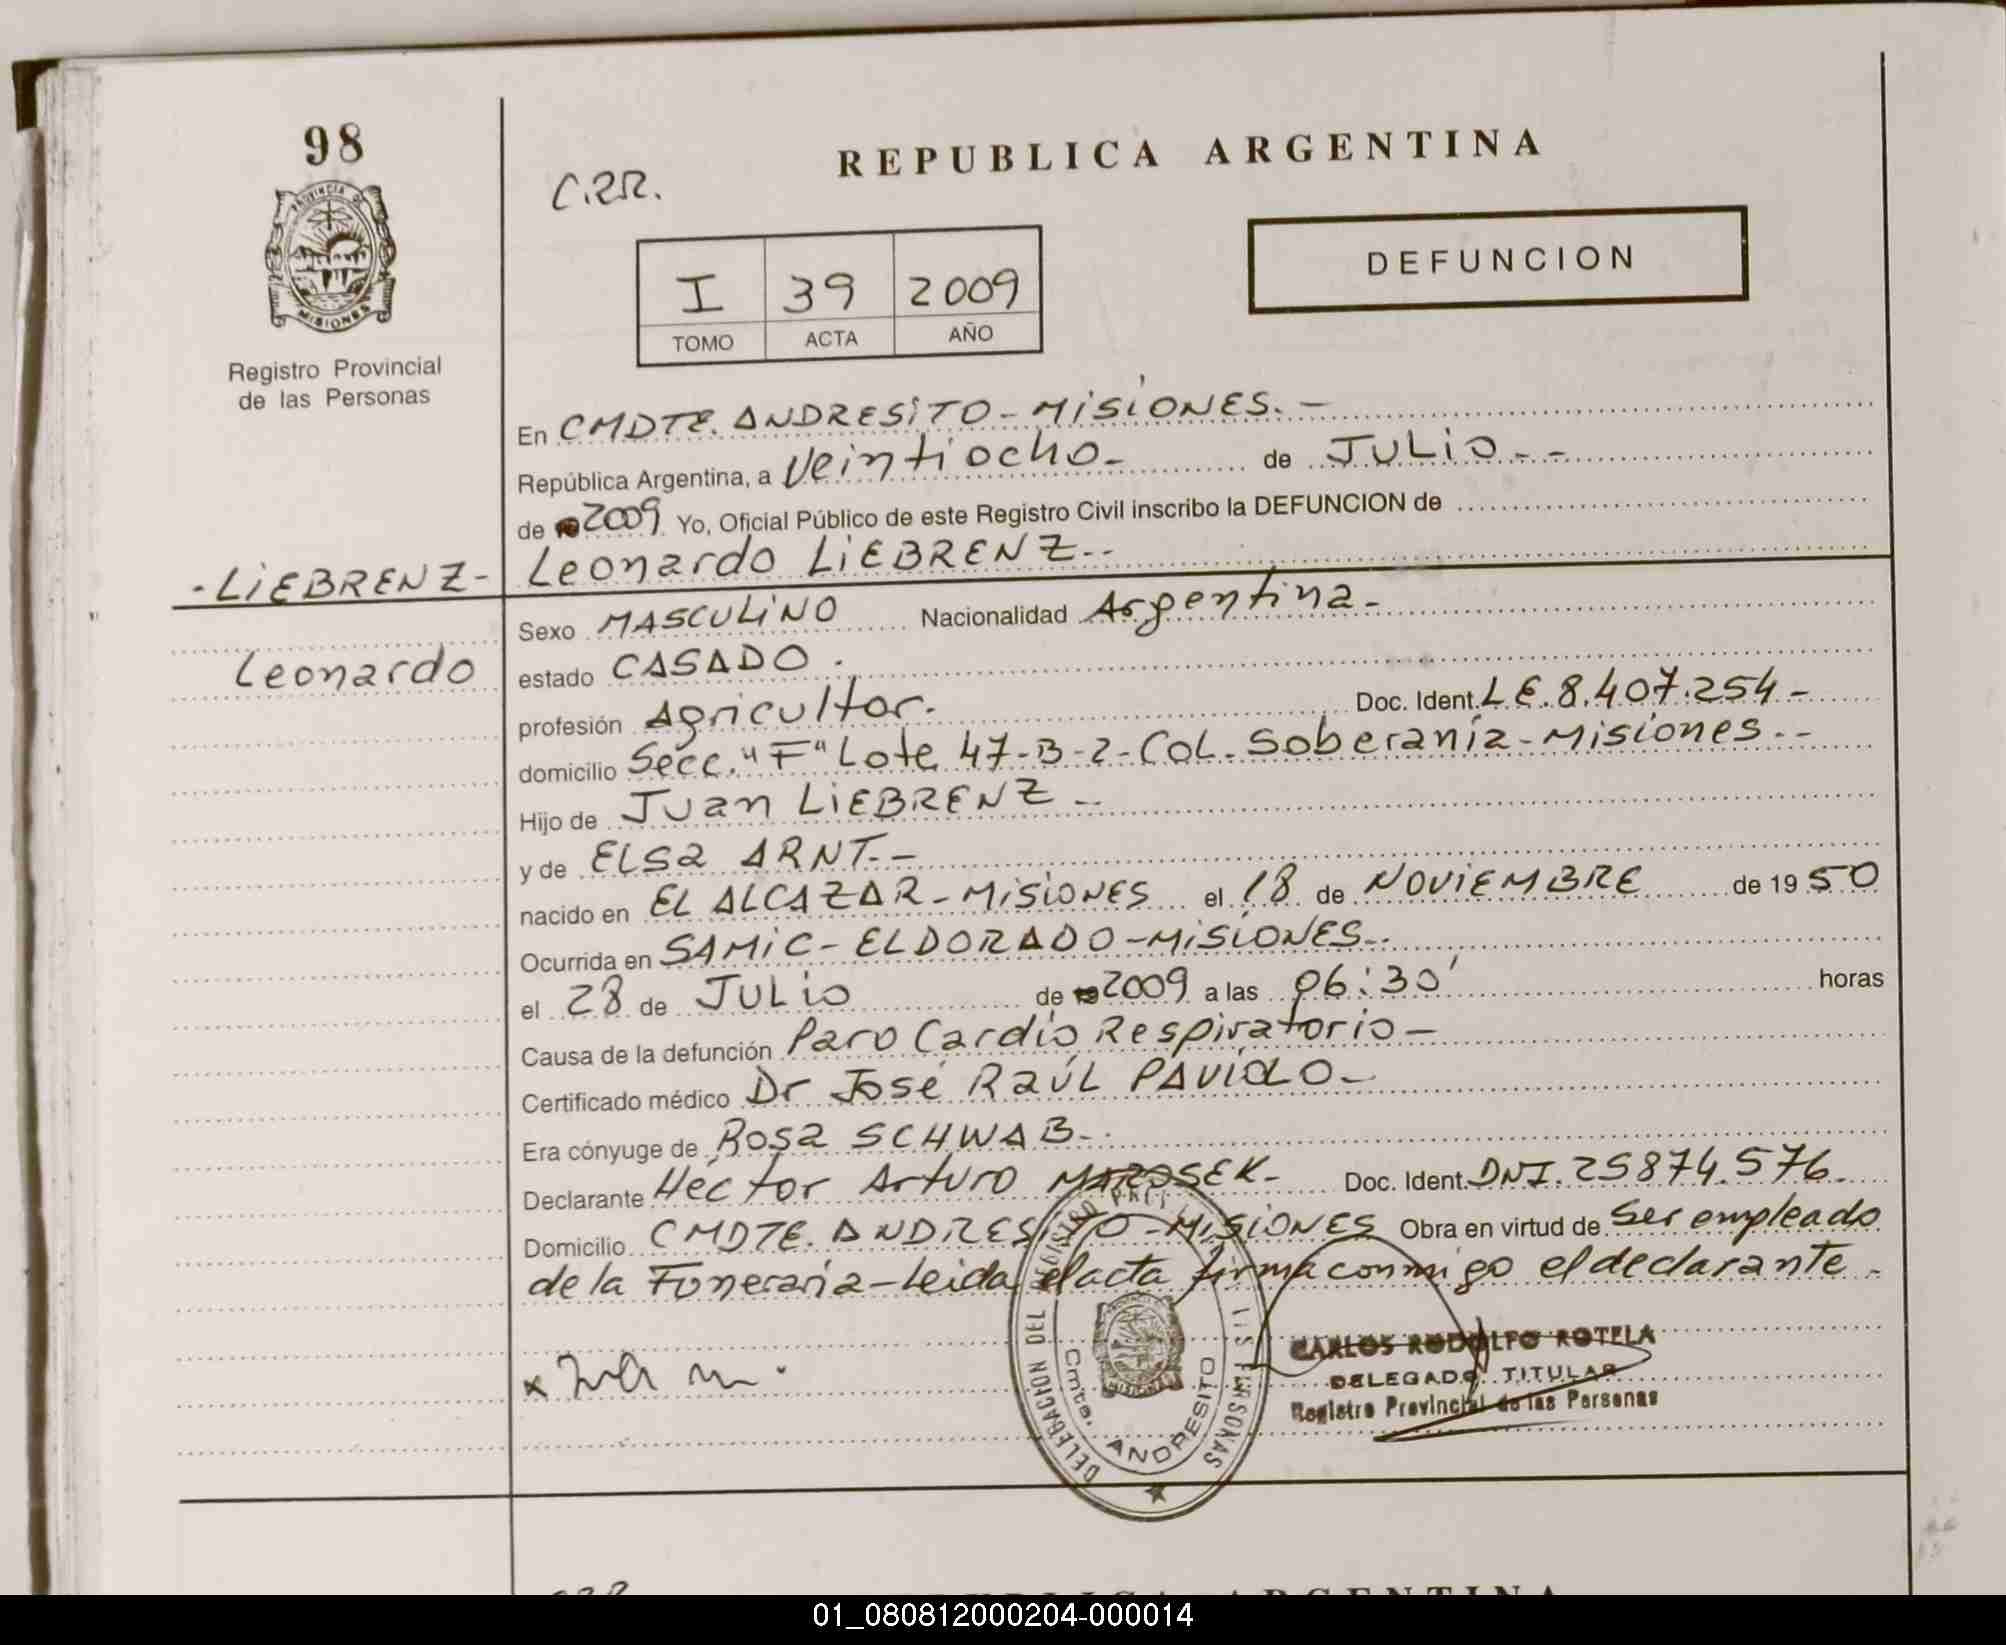 98
PROVINCIA DE
MISIONES
Registro Provincial
de las Personas
REPUBLICA ARGENTINA
I 39 2009
TOMO ACTA AÑO
DEFUNCION
En CMDTE. ANDRESITO - MISIONES. -
República Argentina, a Veintiocho - de JULIO - -
de 2009 Yo, Oficial Público de este Registro Civil inscribo la DEFUNCION de
- LIEBRENZ - Leonardo LIEBRENZ - -
Sexo MASCULINO Nacionalidad Argentina -
Leonardo estado CASADO .
profesión Agricultor. Doc. Ident. LE. 8.407.254 -
domicilio Secc. "F" Lote 47-B-2- COL. Soberanía - Misiones - -
Hijo de Juan LIEBRENZ -
y de ELSa ARNT. -
nacido en EL ALCAZAR - MISIONES el 18 de NOVIEMBRE de 1950
Ocurrida en SAMIC - ELDORADO - MISIONES -
el 28 de JULIO de 2009 a las 06:30' horas
Causa de la defunción Paro Cardio Respiratorio -
Certificado médico Dr José Raúl PAVIOLO -
Era cónyuge de Rosa SCHWAB -
Declarante Héctor Arturo MAROSEK - Doc. Ident. DNI. 25874.576.
Domicilio CMDTE. ANDRESITO - MISIONES Obra en virtud de Ser empleado
de la Funeraria - Leida el acta firma conmigo el declarante -
DELEGACION DEL REGISTRO PERSONAS
Cmte. ANDRESITO
CARLOS RODOLFO ROTELA
DELEGADO TITULAR
Registro Provincial de las Personas
REPUBLICA ARGENTINA
01_080812000204-000014